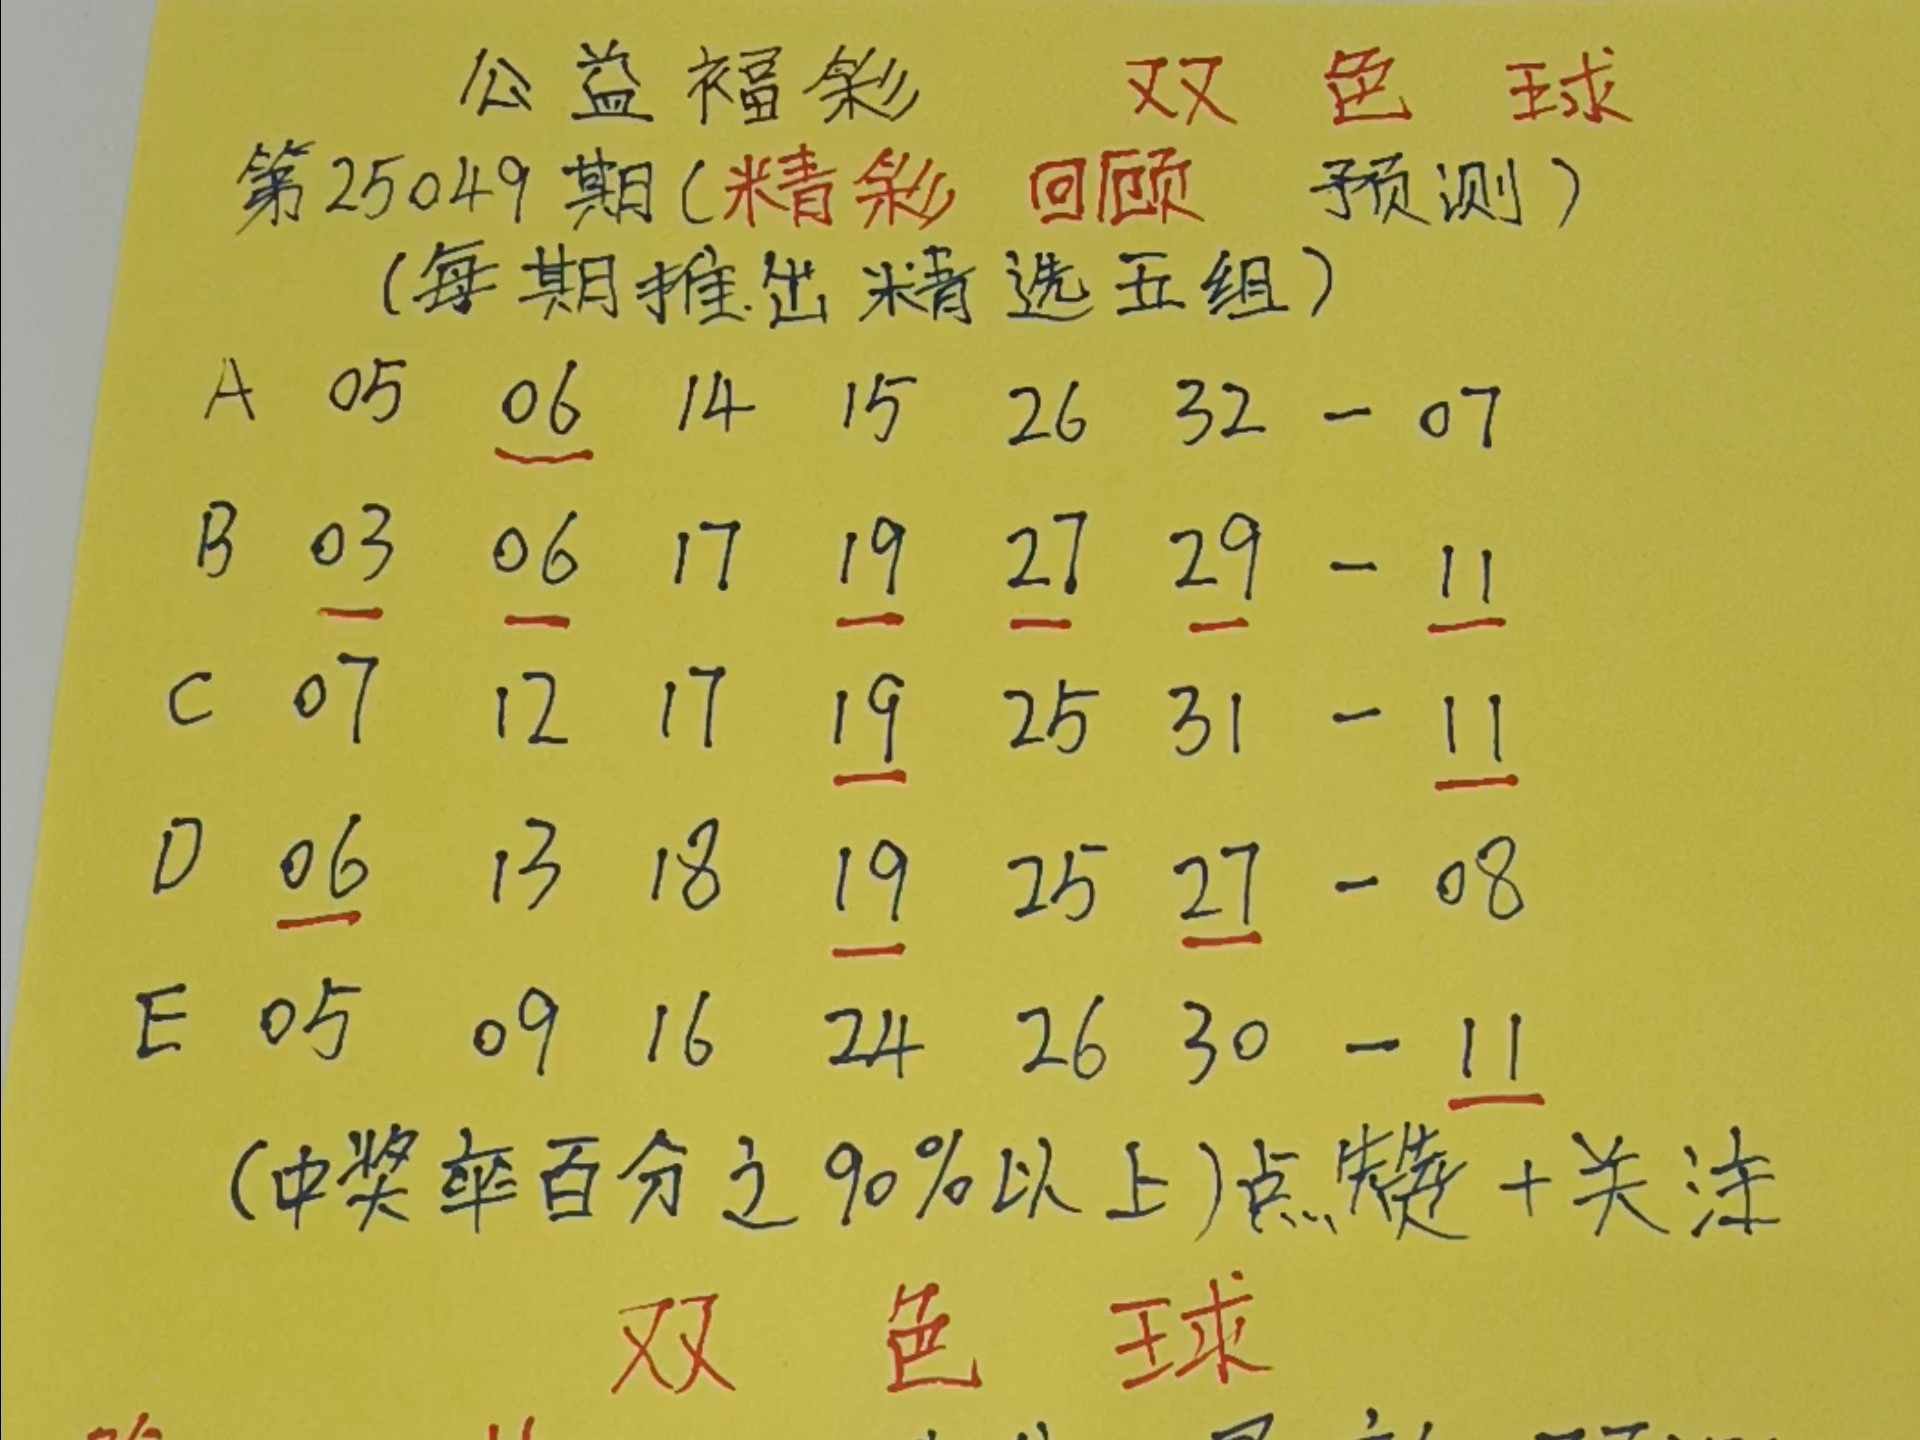 公益福彩 双色球
第25049期(精彩回顾 预测)
(每期推出精选五组)
A 05 06 14 15 26 32 - 07
B 03 06 17 19 27 29 - 11
C 07 12 17 19 25 31 - 11
D 06 13 18 19 25 27 - 08
E 05 09 16 24 26 30 - 11
(中奖率百分之90%以上)点赞+关注
双色球